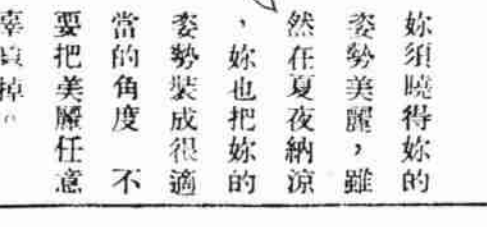 妳須曉得妳的
姿勢美麗，雖
然在夏夜納涼
，妳也把妳的
姿勢裝成很適
當的角度 不
要把美麗任意
辜負掉。